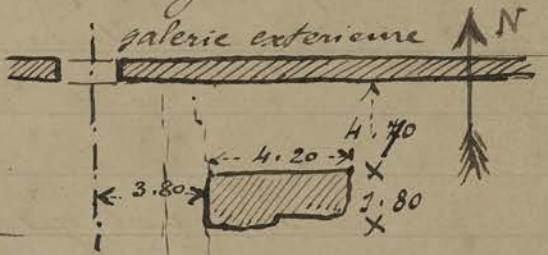 galerie exterieure
N
4.70
4.20
3.80
1.80